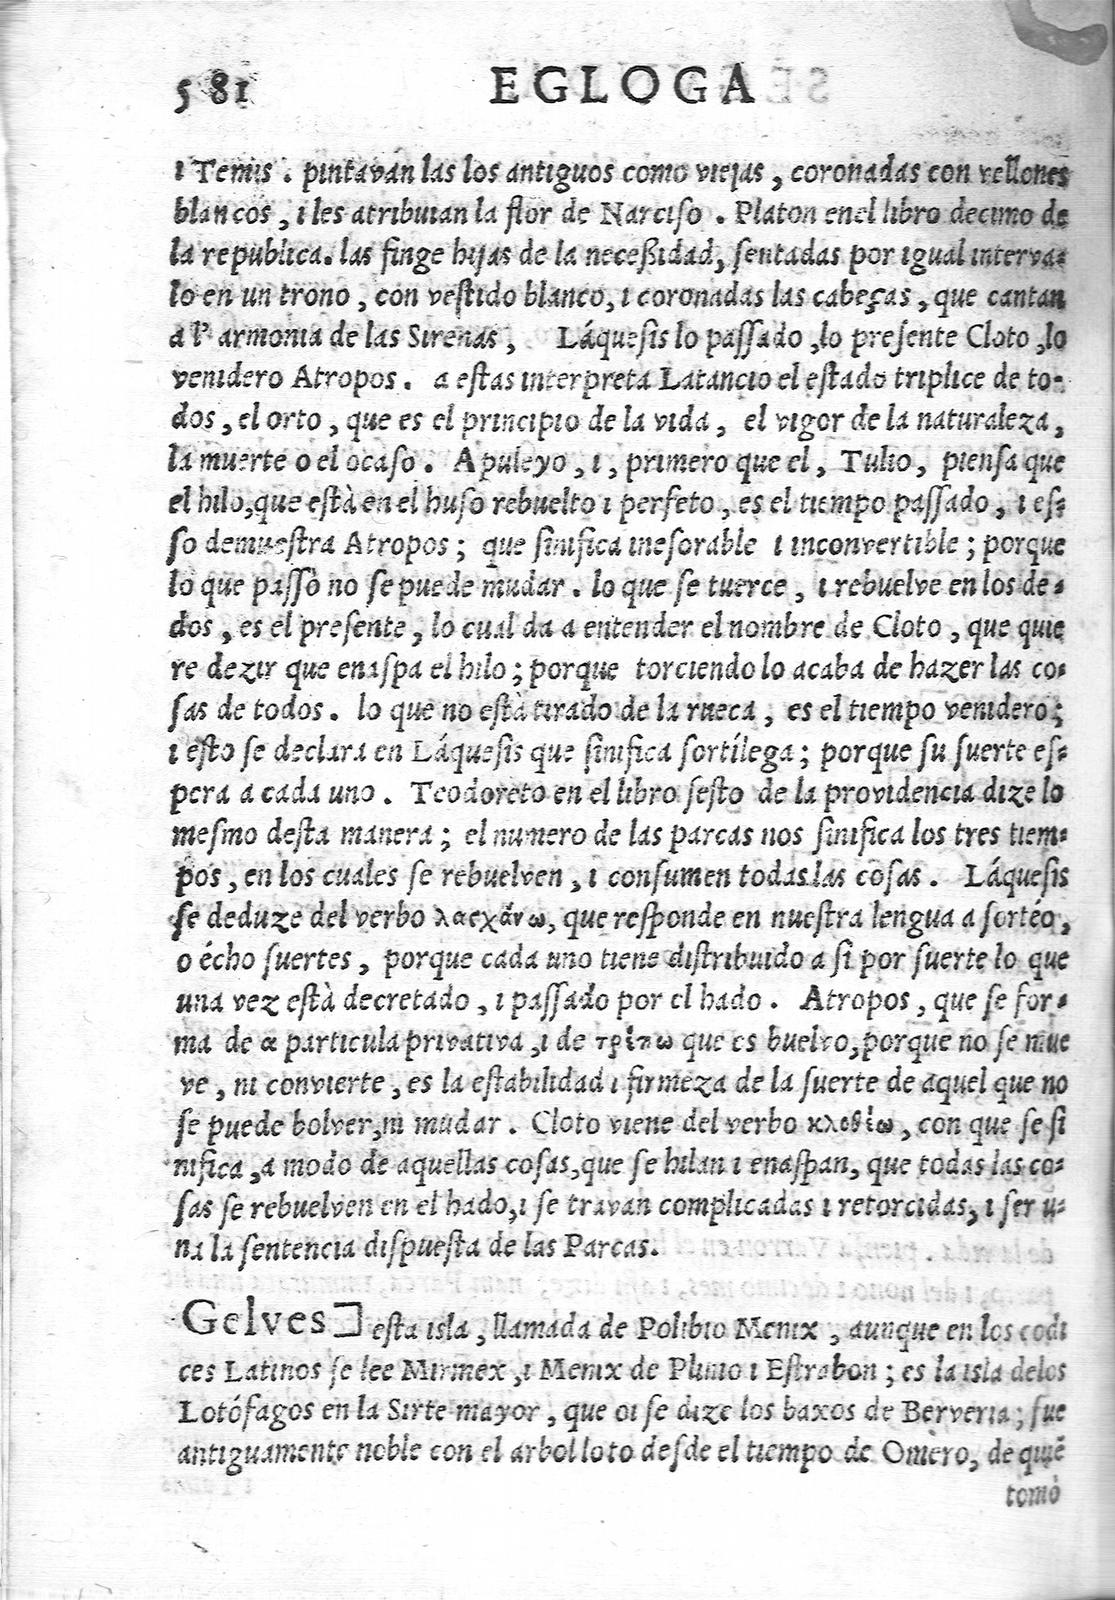 581 EGLOGA
i Temis. pintavan las los antiguos como viejas, coronadas con vellones
blancos, i les atribuian la flor de Narciso. Platon enel libro decimo de
la republica. las finge hijas de la neceßidad, sentadas por igual interva-
lo en un trono, con vestido blanco, i coronadas las cabeças, que cantan
a l' armonia de las Sirenas, Láquesis lo passado, lo presente Cloto, lo
venidero Atropos. a estas interpreta Latancio el estado triplice de to-
dos, el orto, que es el principio de la vida, el vigor de la naturaleza,
la muerte o el ocaso. Apuleyo, i, primero que el, Tulio, piensa que
el hilo, que està en el huso rebuelto i perfeto, es el tiempo passado, i es-
so demuestra Atropos; que sinifica inesorable i inconvertible; porque
lo que passò no se puede mudar. lo que se tuerce, i rebuelve en los de-
dos, es el presente, lo cual da a entender el nombre de Cloto, que quie
re dezir que enaspa el hilo; porque torciendo lo acaba de hazer las co-
sas de todos. lo que no està tirado de la rueca, es el tiempo venidero;
i esto se declara en Láquesis que sinifica sortílega; porque su suerte es-
pera a cada uno. Teodoreto en el libro sesto de la providencia dize lo
mesmo desta manera; el numero de las parcas nos sinifica los tres tiem-
pos, en los cuales se rebuelven, i consumen todas las cosas. Láquesis
se deduze del verbo λαεχάνω, que responde en nuestra lengua a sortéo,
o écho suertes, porque cada uno tiene distribuido a si por suerte lo que
una vez està decretado, i passado por el hado. Atropos, que se for-
ma de α particula privativa, i de τρέπω que es buelvo, porque no se mue
ve, ni convierte, es la estabilidad i firmeza de la suerte de aquel que no
se puede bolver, ni mudar. Cloto viene del verbo κλοθέω, con que se si
nifica, a modo de aquellas cosas, que se hilan i enaspan, que todas las co-
sas se rebuelven en el hado, i se travan complicadas i retorcidas, i ser u-
na la sentencia dispuesta de las Parcas.
Gelves] esta isla, llamada de Polibio Menix, aunque en los codi
ces Latinos se lee Mirmex, i Menix de Plinio i Estrabon; es la isla delos
Lotófagos en la Sirte mayor, que oi se dize los baxos de Berveria; fue
antiguamente noble con el arbol loto desde el tiempo de Omero, de quiē
tomò